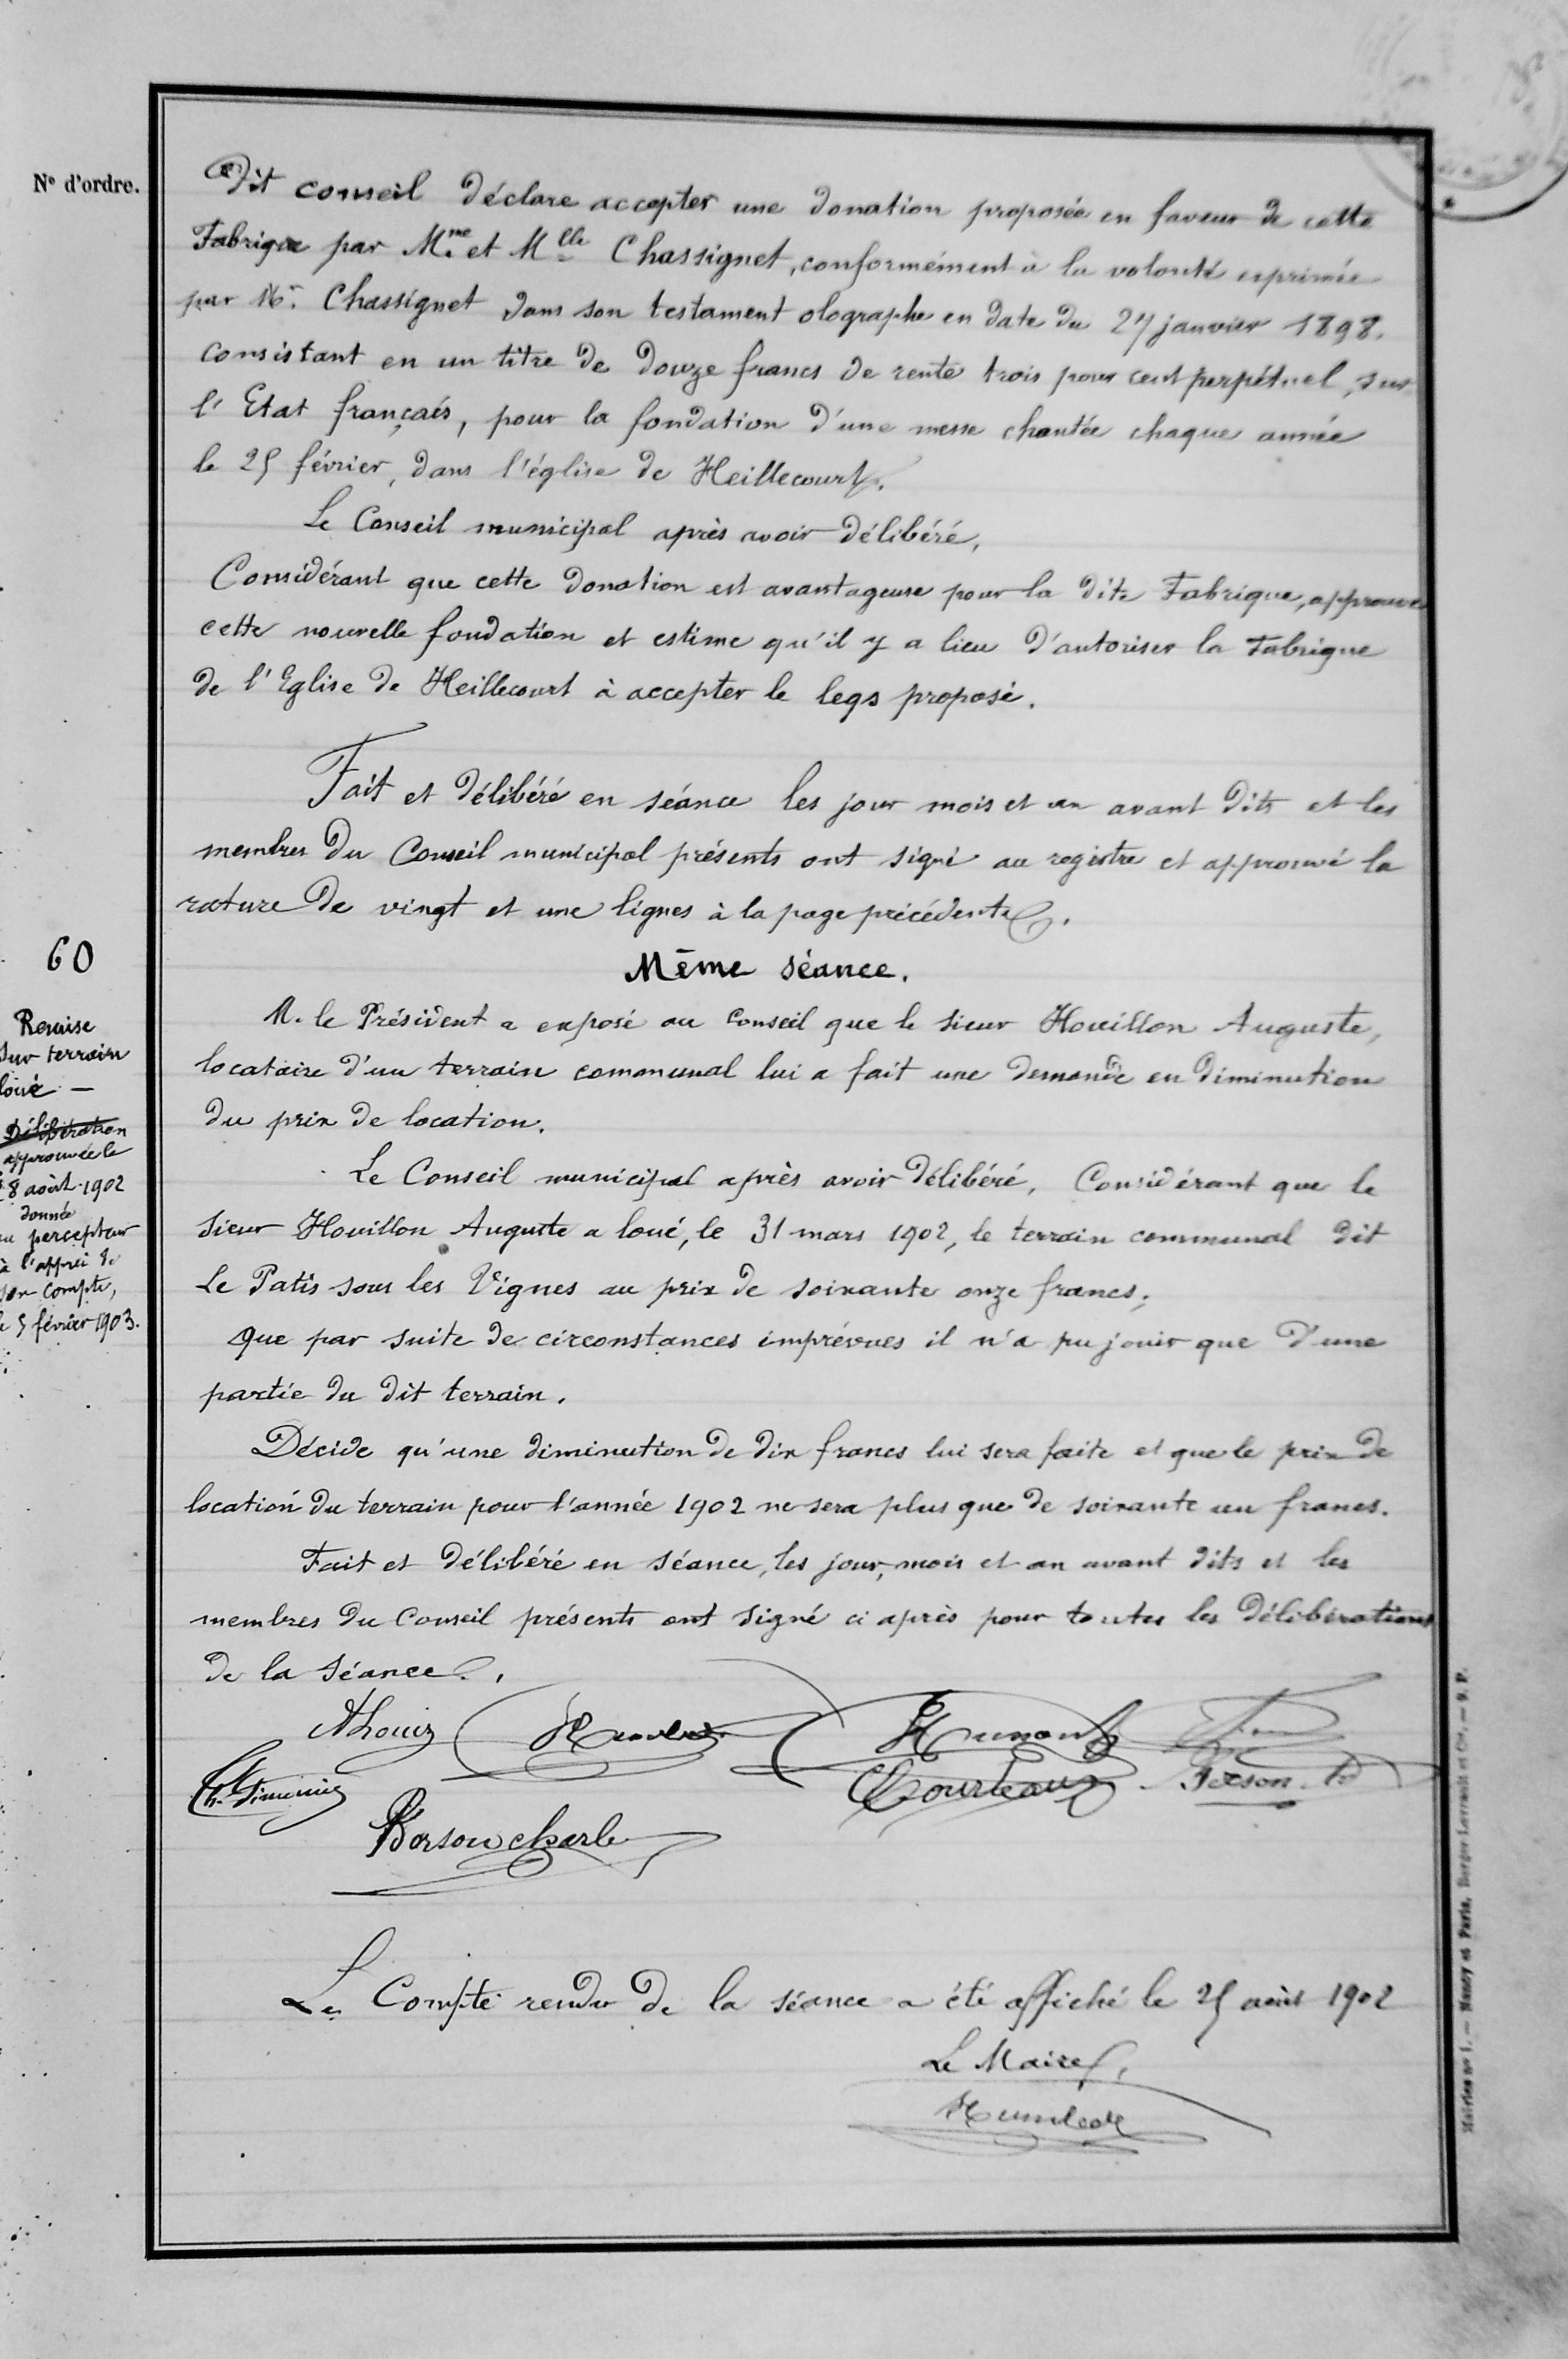 N° d'ordre.
Dit conseil déclare accepter une donation proposée en faveur de cette
Fabrique par Mme et Mlle Chassignet, conformément à la volonté exprimée
par Mr. Chassignet dans son testament olographe en date du 27 janvier 1898.
consistant en un titre de douze francs de rente trois pour cent perpétuel, sur
l'Etat français, pour la fondation d'une messe chantée chaque année
le 25 février, dans l'église de Heillecourt.
Le Conseil municipal après avoir délibéré,
Considérant que cette donation est avantageuse pour la dite Fabrique, approuve
cette nouvelle fondation et estime qu'il y a lieu d'autoriser la Fabrique
de l'Eglise de Heillecourt à accepter le legs proposé.
Fait et délibéré en séance les jour mois et an avant dits et les
membres du Conseil municipal présents ont signé au registre et approuvé la
rature de vingt et une lignes à la page précédente.
60
Même séance.
Remise
sur terrain
loué —
Délibération
approuvée le
8 août 1902
donnée
au percepteur
à l'appui de
son compte,
le 5 février 1903.
M. le Président a exposé au Conseil que le sieur Houillon Auguste,
locataire d'un terrain communal lui a fait une demande en diminution
du prix de location.
Le Conseil municipal après avoir délibéré, Considérant que le
sieur Houillon Auguste a loué, le 31 mars 1902, le terrain communal dit
Le Patis sous les Vignes au prix de soixante onze francs;
que par suite de circonstances imprévues il n'a pu jouir que d'une
partie du dit terrain.
Décide qu'une diminution de dix francs lui sera faite et que le prix de
location du terrain pour l'année 1902 ne sera plus que de soixante un francs.
Fait et délibéré en séance, les jour, mois et an avant dits et les
membres du Conseil présents ont signé ci après pour toutes les délibérations
de la séance.
ALouis
Ferson
Borson charle
Le Compte rendu de la séance a été affiché le 25 août 1902
Le Maire,
Mairies n° 1. — Nancy et Paris, Berger-Levrault et Cie. — 9. P.